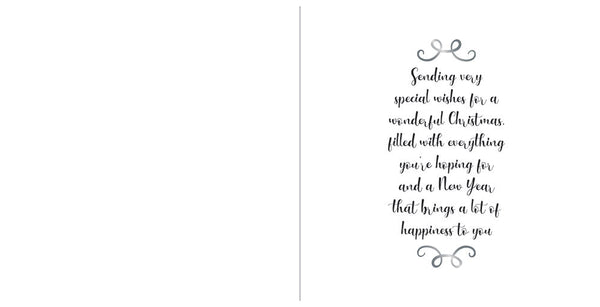 Sending very
special wishes for a
wonderful Christmas,
filled with everything
you're hoping for
and a New Year
that brings a lot of
happiness to you